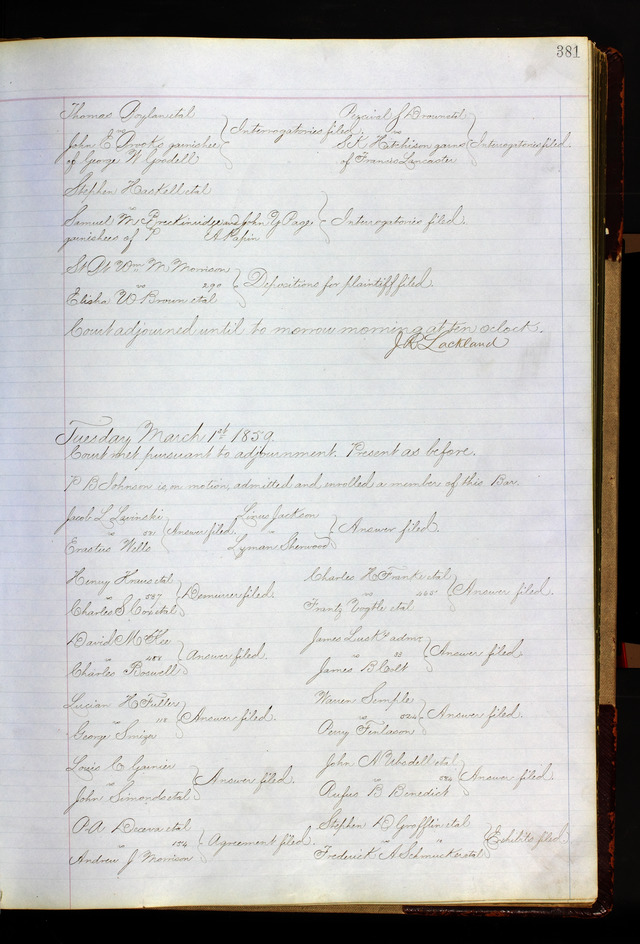 381
Thomas Doylan etal
vs
John C Crooks garnishee
of George W Goodell
Interrogatories filed.
Percival J Brown etal
vs
S K Hutchison garns
of Francis Lancaster
Interrogatories filed.
Stephen Haskell etal
Samuel M Breckinridge and John Y Page
garnishees of P A Papin
Interrogatories filed.
Wm M Morrison
vs 290
Elisha W Brown etal
Depositions for plaintiff filed.
Court adjourned until to morrow morning at ten oclock.
J R Lackland
Tuesday March 1st 1859.
Court met pursuant to adjournment. Present as before.
P B Johnson is, on motion, admitted and enrolled a member of this Bar.
Jacob L
vs
Erastus Wells
Answer filed.
Linus Jackson
Lyman Sherwood
Answer filed.
Henry etal
vs 587
Charles S Cox etal
Demurrer filed.
Charles H Franke etal
vs
Frantz etal
Answer filed.
David McKee
vs
Charles Boswell
Answer filed.
James Lusk's admr
vs
James B Colt
Answer filed.
Lucian H Fuller
vs 118
George Smiza
Answer filed.
Warren Semple
vs
Perry Finlason
Answer filed.
Louis C Garnier
vs
John Simonds etal
Answer filed.
John N etal
vs
Rufus B Benedict
Answer filed.
etal
vs 134
Andrew J Morrison
Agreement filed.
Stephen D Grafflin etal
vs
Frederick A Schmucker etal
Exhibits filed.